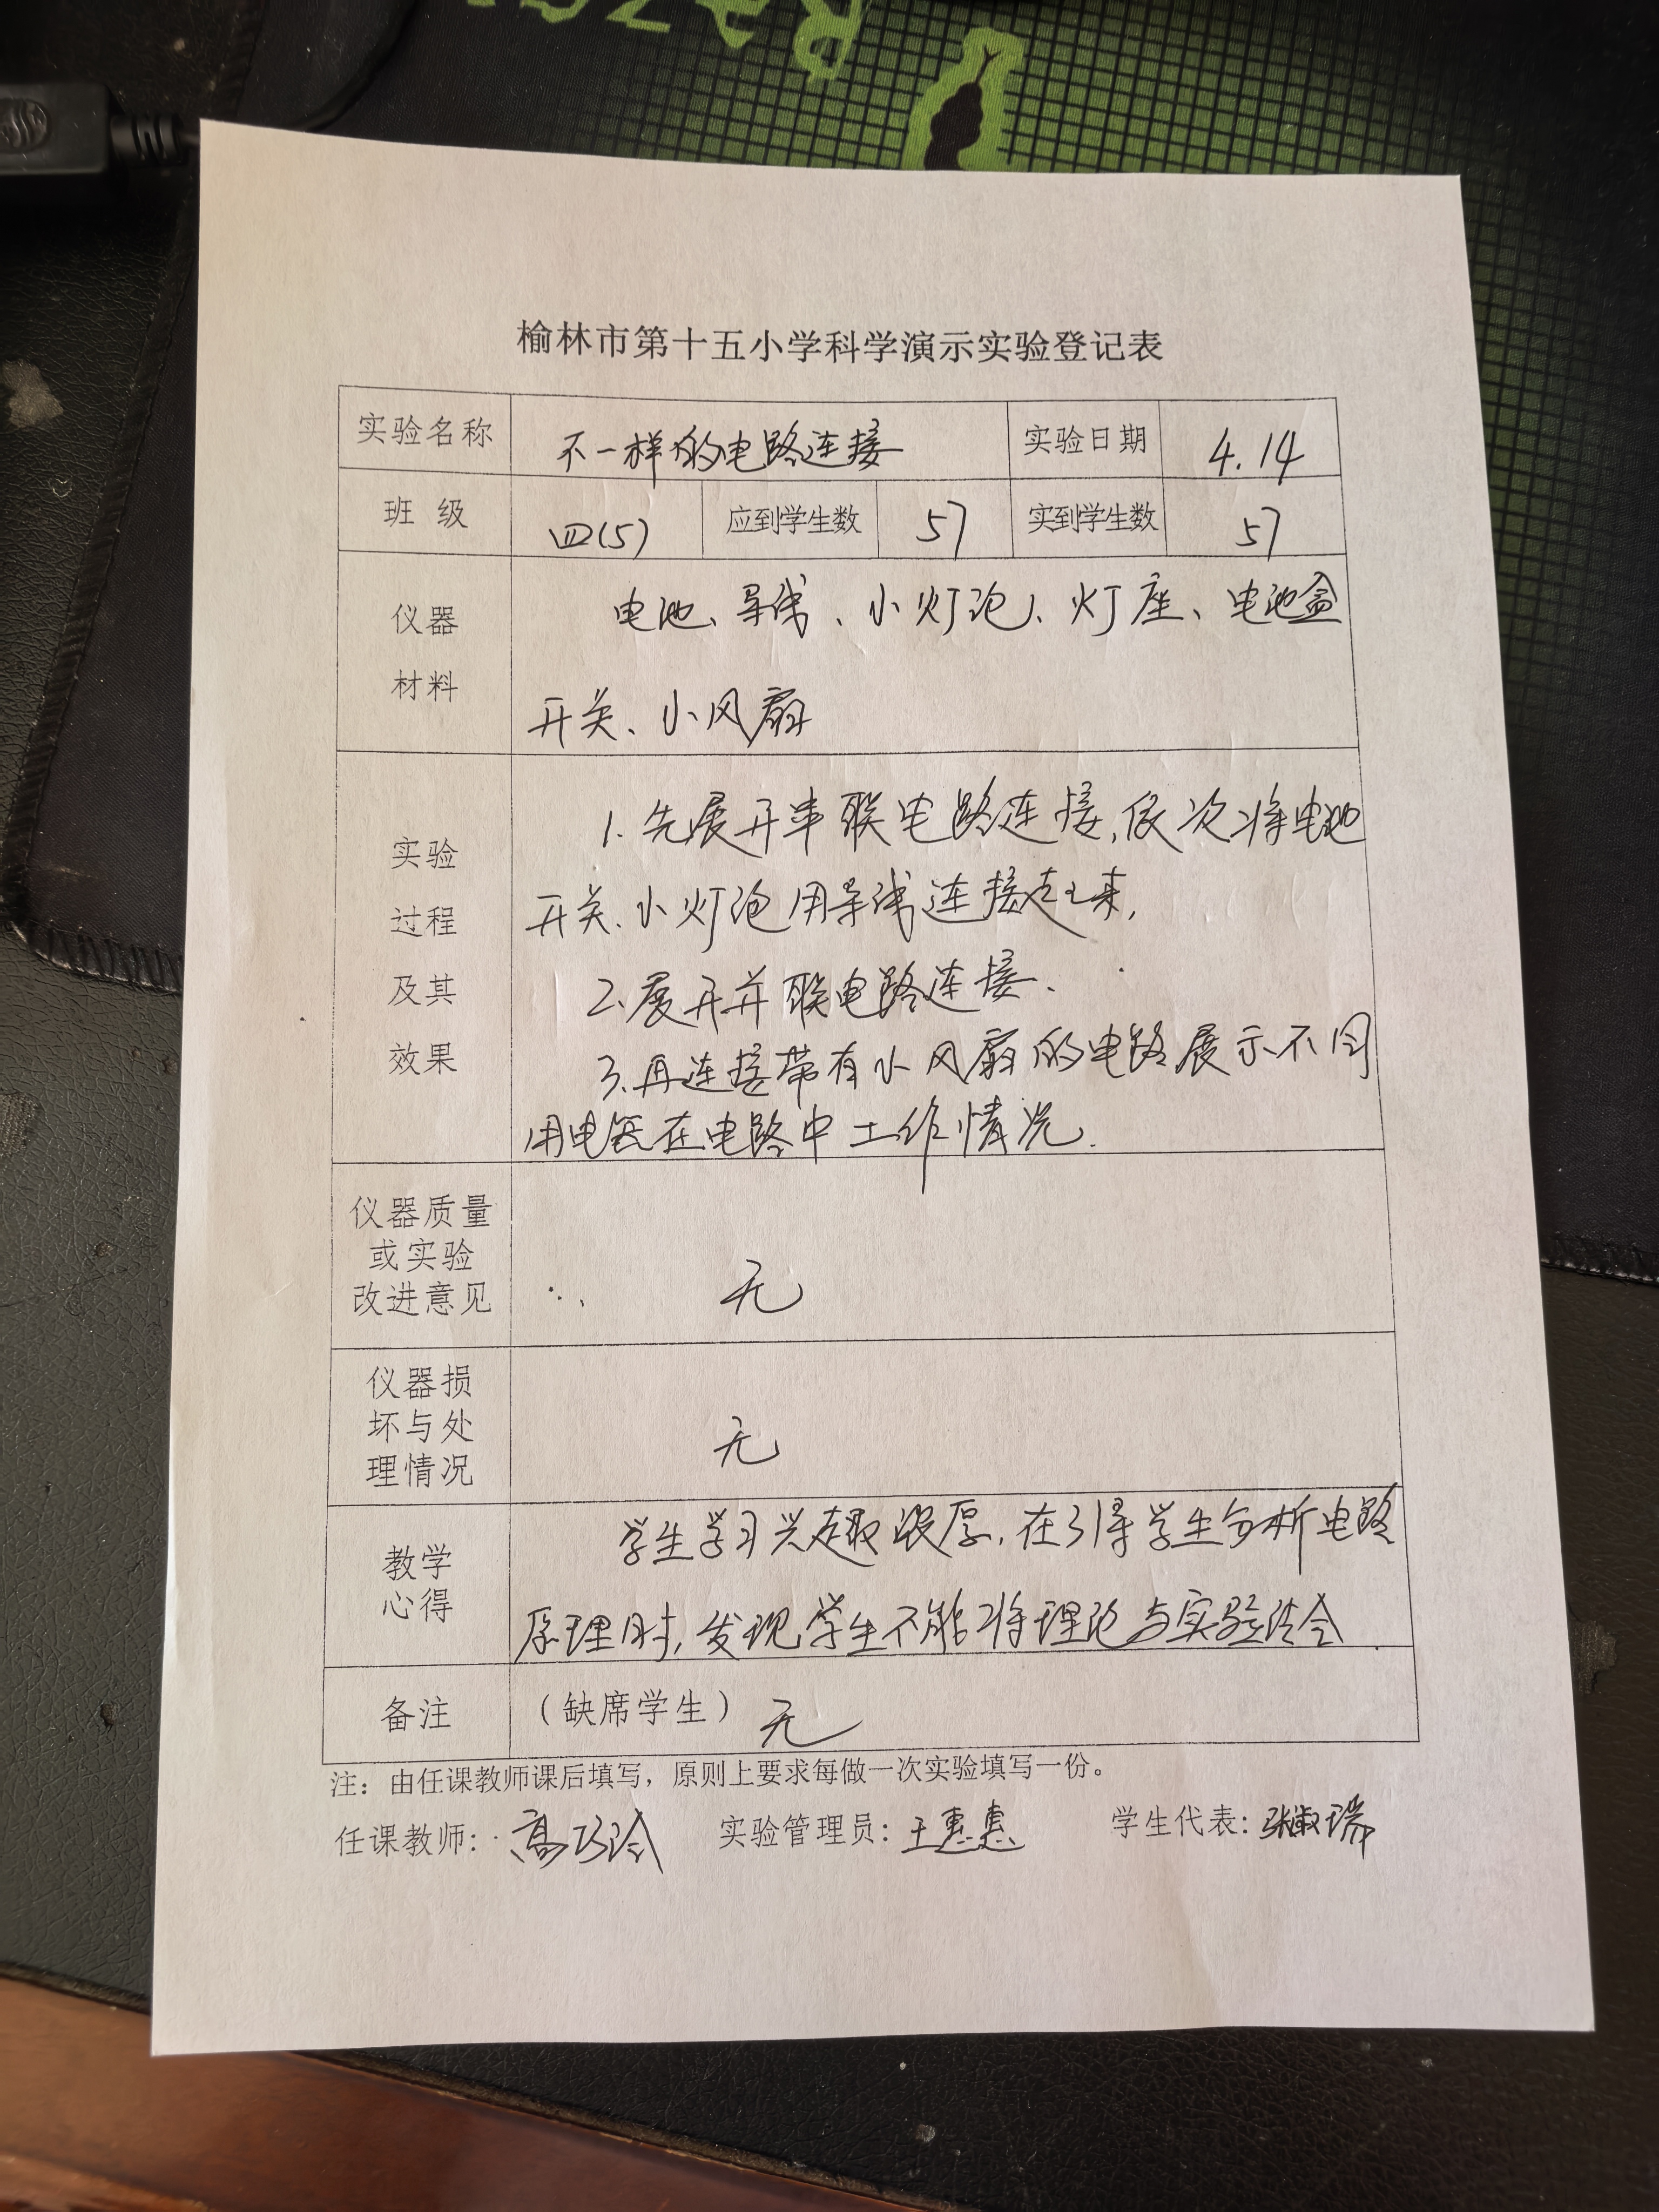 RAZER
榆林市第十五小学科学演示实验登记表
实验名称 不一样的电路连接 实验日期 4.14
班 级 四(5) 应到学生数 57 实到学生数 57
仪器 电池、导线、小灯泡、灯座、电池盒
材料 开关、小风扇
实验 1.先展开串联电路连接,依次将电池
过程 开关、小灯泡用导线连接起来,
及其 2.展开并联电路连接.
效果 3.再连接带有小风扇的电路展示不同
用电器在电路中工作情况.
仪器质量
或实验
改进意见 无
仪器损
坏与处 无
理情况
教学 学生学习兴趣浓厚,在引导学生分析电路
心得 原理时,发现学生不能将理论与实验结合
备注 (缺席学生) 无
注:由任课教师课后填写,原则上要求每做一次实验填写一份。
任课教师:高巧玲 实验管理员:王惠惠 学生代表:张淑瑞